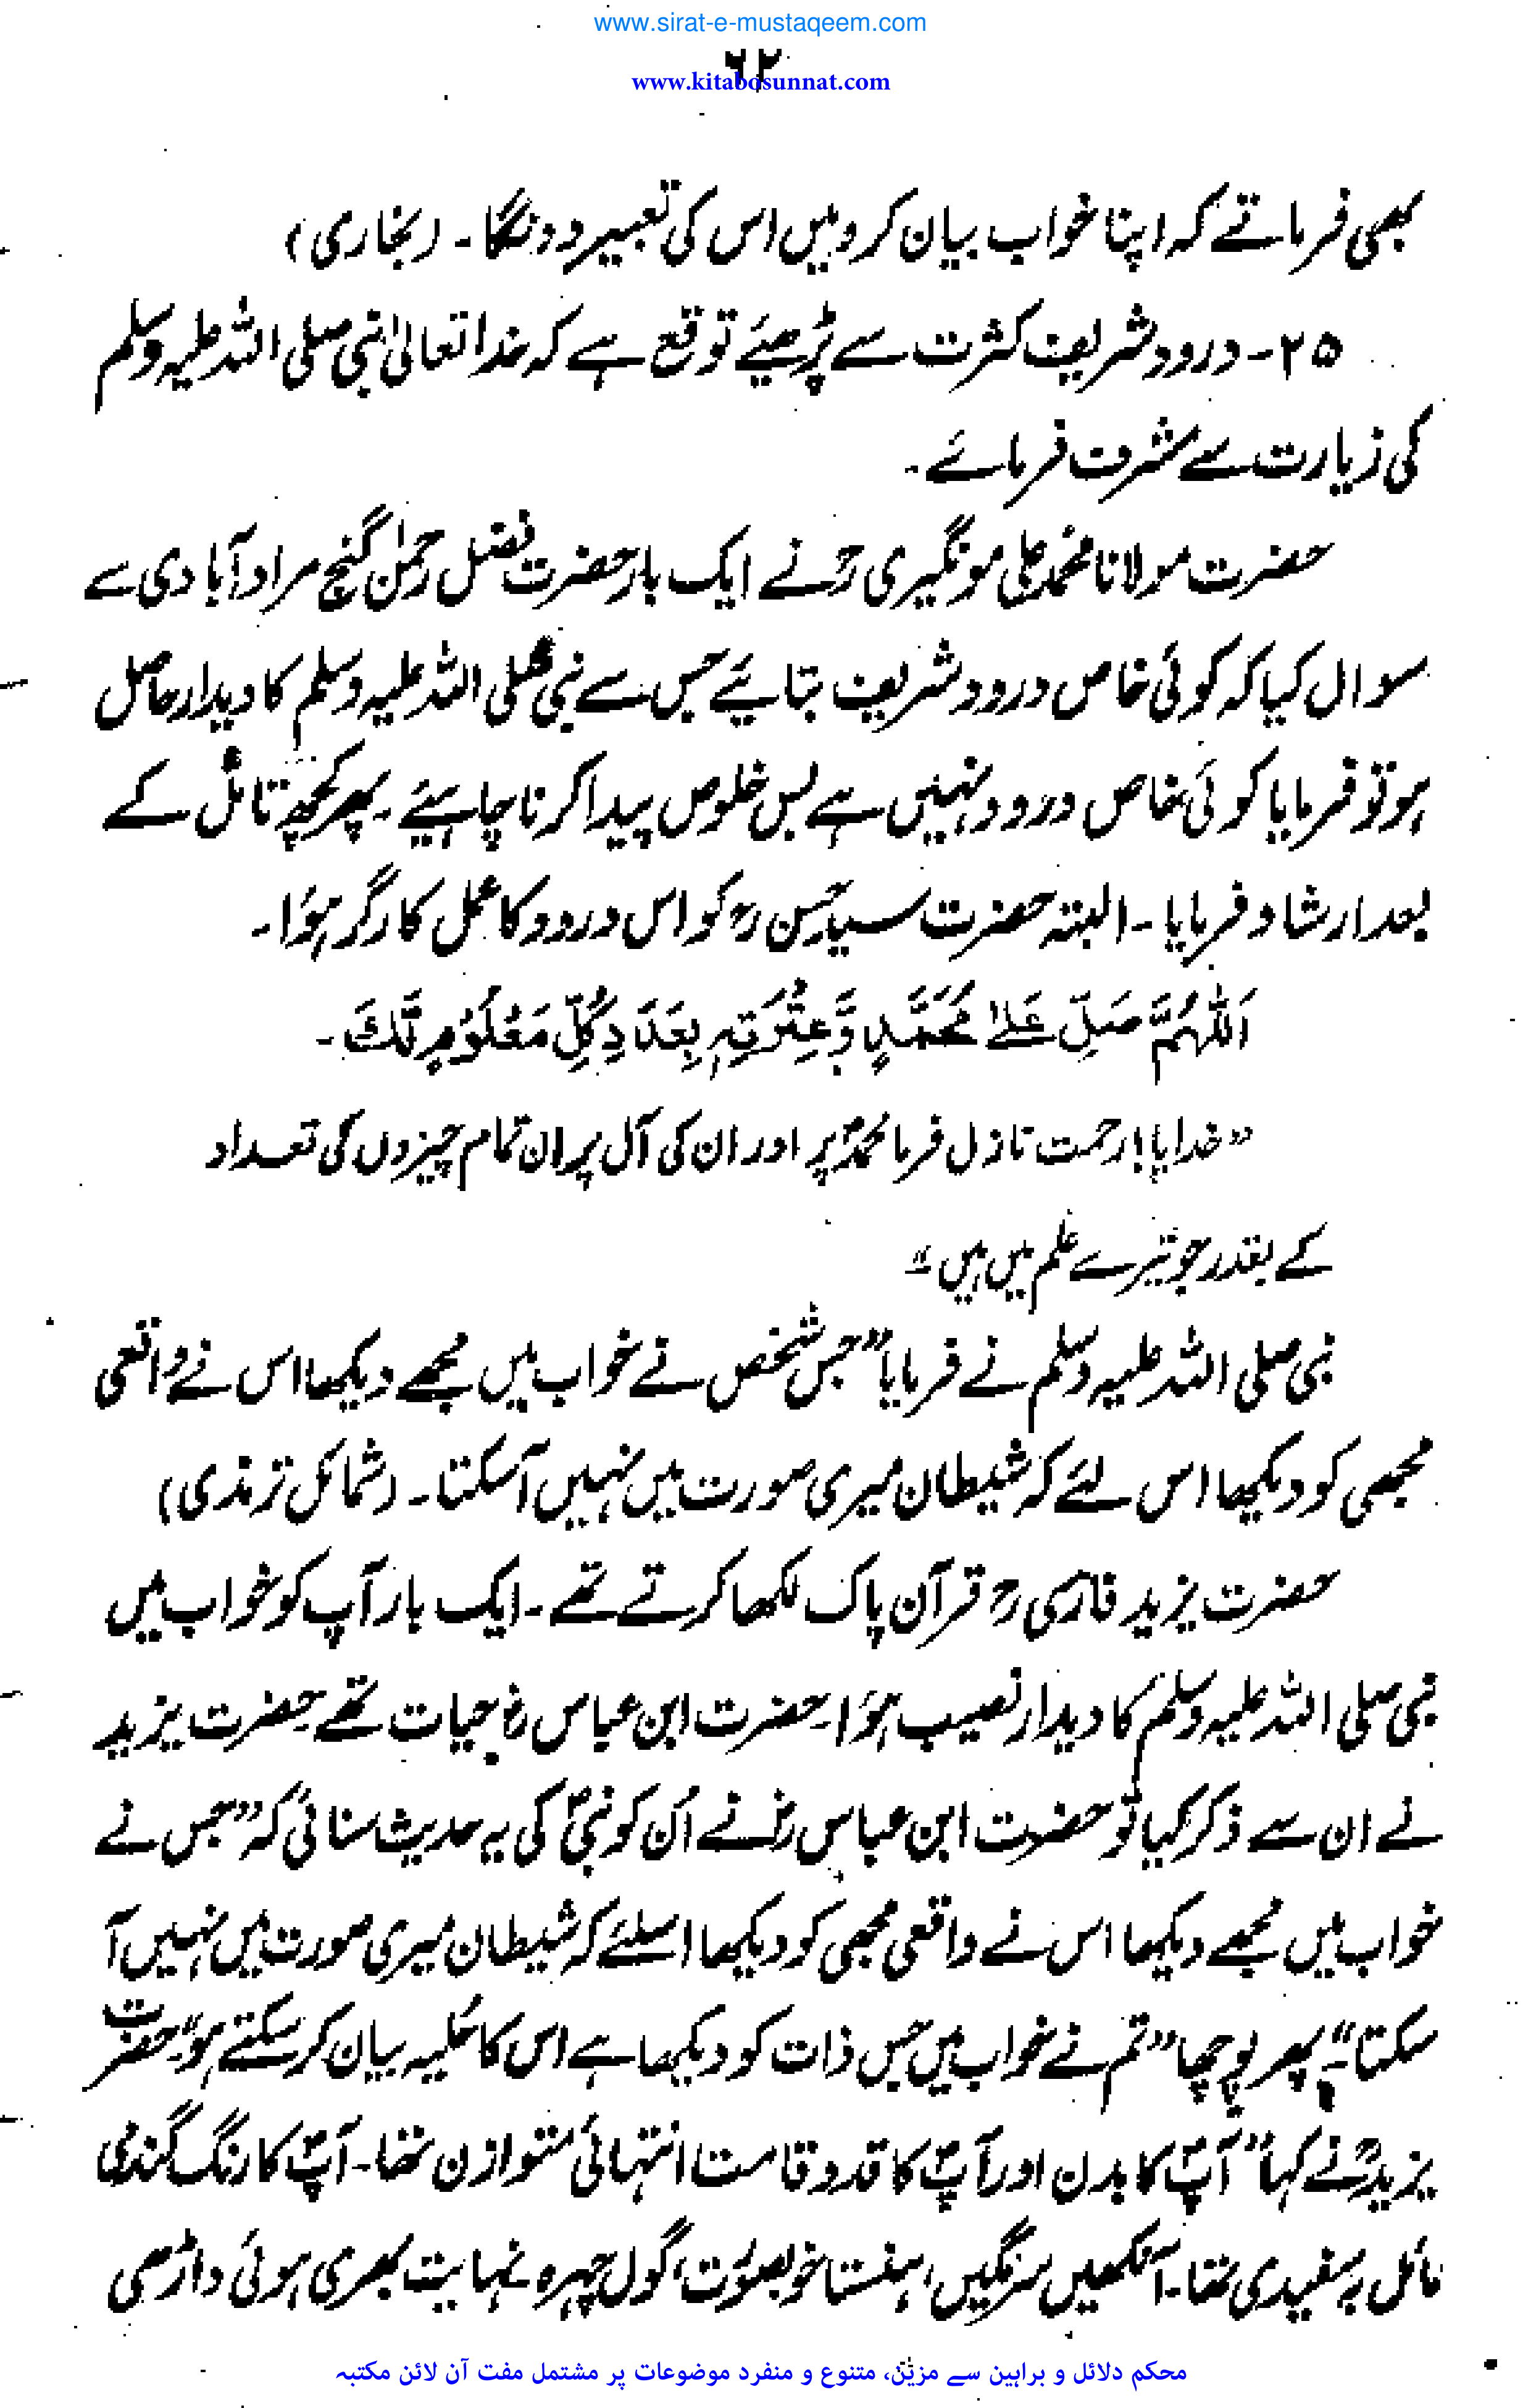 www.sirat-e-mustaqeem.com
۶۲
www.kitabosunnat.com
بھی فرماتے کہ اپنا خواب بیان کرو میں اس کی تعبیر دونگا۔ (بخاری)
۲۵۔ درود شریف کثرت سے پڑھیئے توقع ہے کہ خدا تعالیٰ نبی صلی اللہ علیہ وسلم
کی زیارت سے مشرف فرمائے۔
حضرت مولانا محمد علی مونگیری رحؒ نے ایک بار حضرت فضل رحمٰن گنج مراد آبادی سے
سوال کیا کہ کوئی خاص درود شریف بتائیے جس سے نبی صلی اللہ علیہ وسلم کا دیدار حاصل
ہو تو فرمایا کوئی خاص درود نہیں ہے بس خلوص پیدا کرنا چاہیئے۔ پھر کچھ تامل کے
بعد ارشاد فرمایا۔ البتہ حضرت سید حسن رح کو اس درود کا عمل کارگر ہؤا۔
اَللّٰهُمَّ صَلِّ عَلےٰ مُحَمَّدٍ وَّعِتْرَتِهٖ بِعَدَدِ كُلِّ مَعْلُوْمٍ لَّكَ۔
”خدایا! رحمت نازل فرما محمدؐ پر اور ان کی آل پر ان تمام چیزوں کی تعداد
کے بقدر جو تیرے علم میں ہیں“
نبی صلی اللہ علیہ وسلم نے فرمایا ”جس شخص نے خواب میں مجھے دیکھا اس نے واقعی
مجھی کو دیکھا اس لئے کہ شیطان میری صورت میں نہیں آسکتا۔ (شمائل ترمذی)
حضرت یزید فارسی رح قرآن پاک لکھا کرتے تھے۔ ایک بار آپ کو خواب میں
نبی صلی اللہ علیہ وسلم کا دیدار نصیب ہؤا۔ حضرت ابن عباس رض حیات تھے۔ حضرت یزید
نے ان سے ذکر کیا تو حضرت ابن عباس رض نے اُن کو نبیؐ کی یہ حدیث سنائی کہ ”جس نے
خواب میں مجھے دیکھا اس نے واقعی مجھی کو دیکھا اسلئے کہ شیطان میری صورت میں نہیں آ
سکتا“۔ پھر پوچھا ”تم نے خواب میں جس ذات کو دیکھا ہے اس کا حُلیہ بیان کر سکتے ہو“۔ حضرت
یزیدؒ نے کہا ”آپؐ کا بدن اور آپؐ کا قد و قامت انتہائی متوازن تھا۔ آپؐ کا رنگ گندمی
مائل بہ سفیدی تھا۔ آنکھیں سرمگیں، ہنستا خوبصورت، گول چہرہ نہایت بھری ہوئی داڑھی
محکم دلائل و براہین سے مزیّن، متنوع و منفرد موضوعات پر مشتمل مفت آن لائن مکتبہ